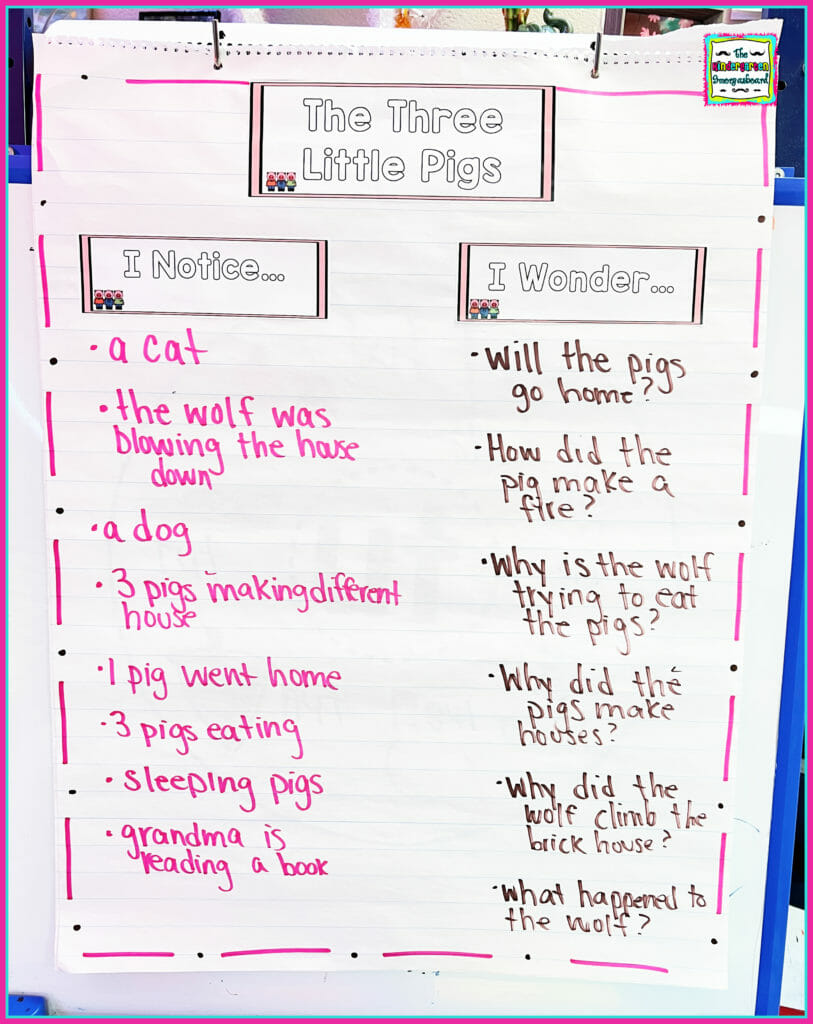 The
Kindergarten
Smorgasboard
The Three
Little Pigs
I Notice...
• a cat
• the wolf was
blowing the house
down
• a dog
• 3 pigs making different
house
• 1 pig went home
• 3 pigs eating
• sleeping pigs
• grandma is
reading a book
I Wonder...
• Will the pigs
go home?
• How did the
pig make a
fire?
• Why is the wolf
trying to eat
the pigs?
• Why did the
pigs make
houses?
• Why did the
wolf climb the
brick house?
• What happened to
the wolf?